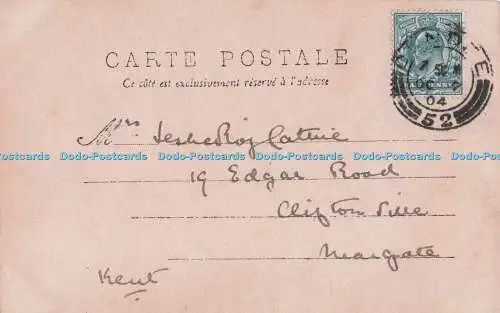 CARTE POSTALE
Ce côté est exclusivement réservé à l'adresse
04
52
Mrs Leslie Roy Cattrie
Dodo-Postcards Dodo-Postcards Dodo-Postcards Dodo-Postcards Dodo-Postcards
19 Edgar Road
Cliftonville
Margate
Kent